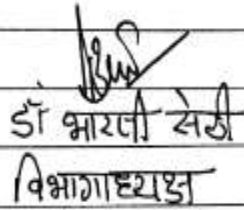 डॉ भारती सेठी
विभागाध्यक्ष